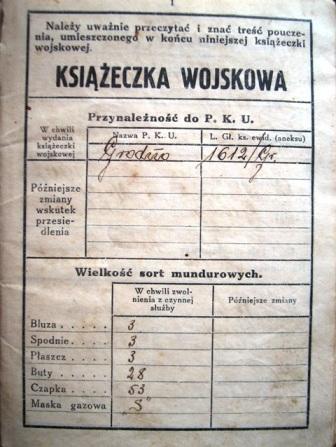 Należy uważnie przeczytać i znać treść poucze-
nia, umieszczonego w końcu niniejszej książeczki
wojskowej.
KSIĄŻECZKA WOJSKOWA
Przynależność do P. K. U.
W chwili
wydania
książeczki
wojskowej
Nazwa P. K. U.
L. Gł. ks. ewid. (aneksu)
Grodno
1612/Gr.
Późniejsze
zmiany
wskutek
przesie-
dlenia
Wielkość sort mundurowych.
W chwili zwol-
nienia z czynnej
służby
Późniejsze zmiany
Bluza . . . . . 3
Spodnie . . . . 3
Płaszcz . . . . 3
Buty . . . . . 28
Czapka . . . . 53
Maska gazowa „S"